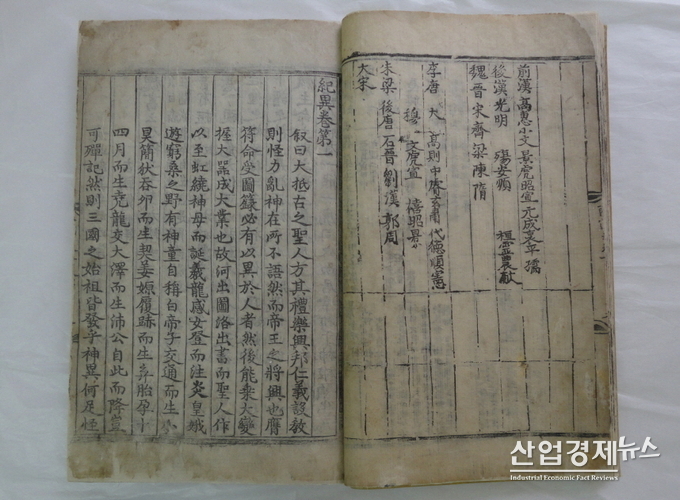 前漢 高惠小文景虎昭宣 元成哀平孺
後漢光明 殤安順 桓靈農獻
魏晉宋齊梁陳隋
李唐 大 高則中睿玄肅代德順憲
穆 文虎宣 僖昭景
朱梁 後唐 石晉 劉漢 郭周
大宋
紀異卷第一
叙曰大抵古之聖人方其禮樂興邦仁義設教
則怪力亂神在所不語然而帝王之將興也膺
符命受圖籙必有以異於人者然後能乗大變
握大器成大業也故河出圖洛出書而聖人作
以至虹繞神母而誕羲龍感女登而注炎皇娥
遊窮桑之野有神童自稱白帝子交通而生小
昊簡狄吞卵而生契姜嫄履跡而生弃胎孕十
四月而生堯龍交大澤而生沛公自此而降豈
可殫記然則三國之始祖皆發乎神異何足怪
산업경제뉴스
Industrial Economic Fact Reviews